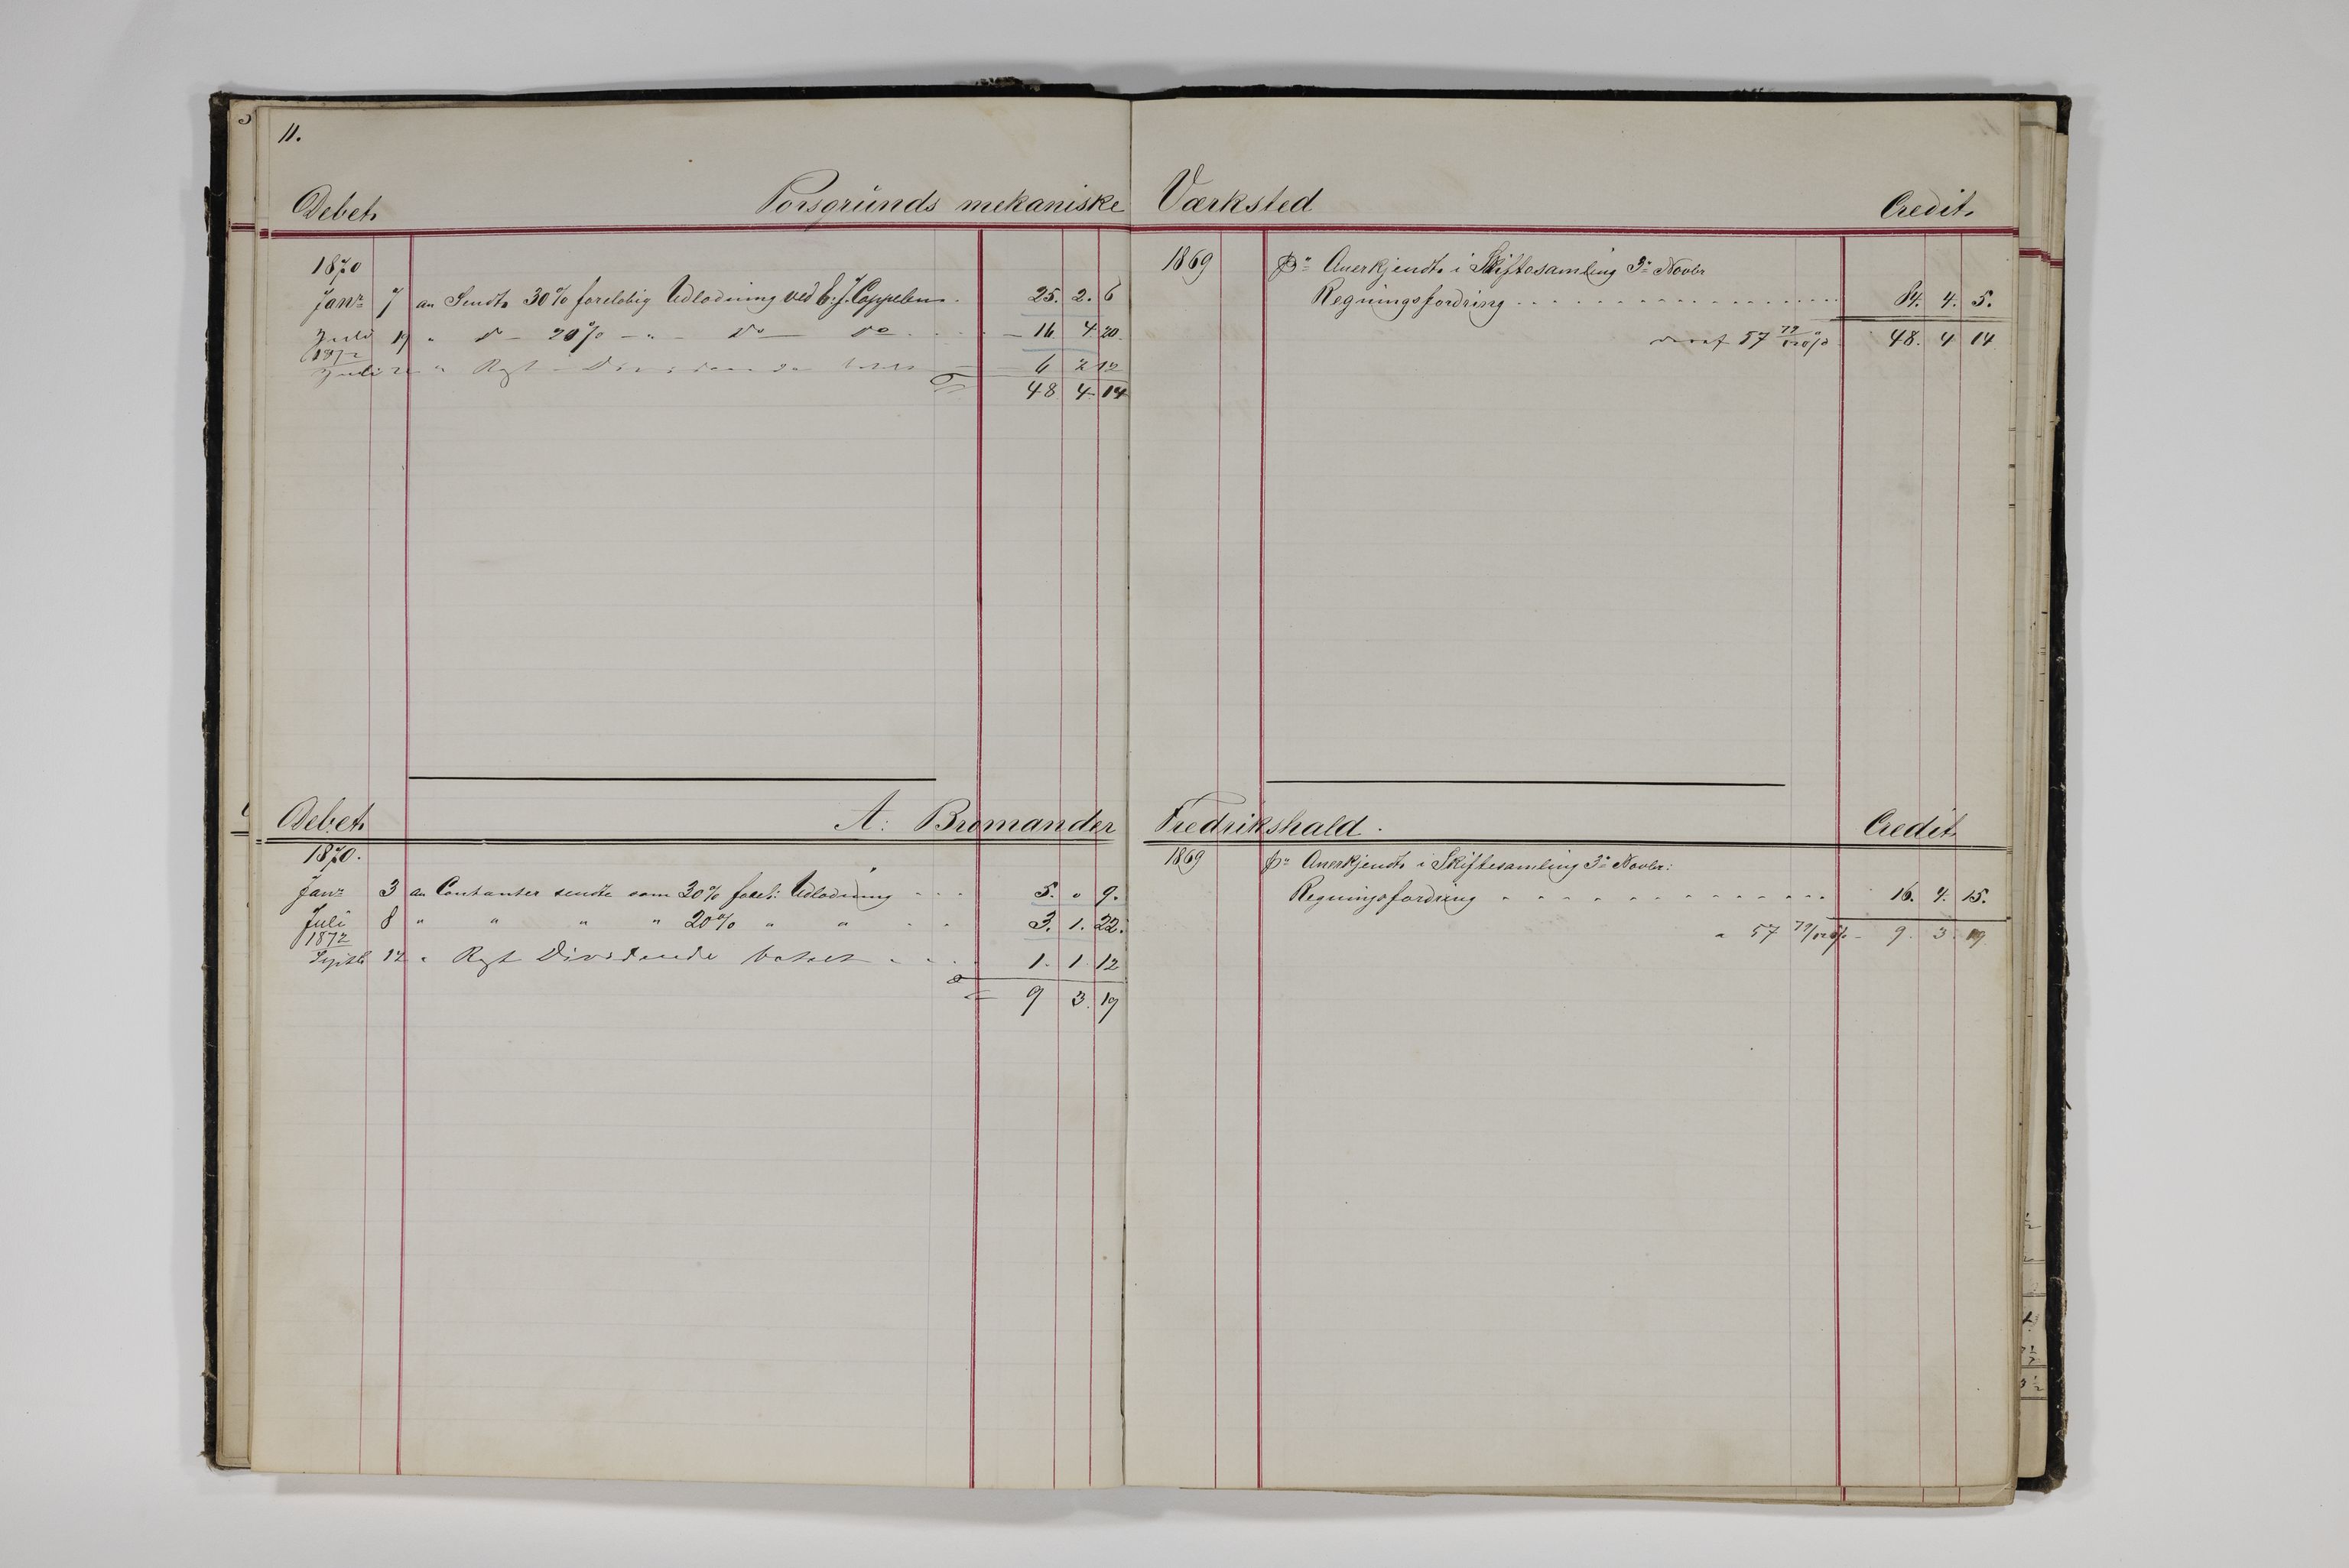 11.
Debet. Porsgrunds mekaniske Værksted Credit.
1870
Janr 7 an Sendt 30% foreløbig Udlodning ved C. J. Cappelen . 25. 2. 6
Juli 19 " do - 20% - " - do - do . . . - 16 4. 20.
1872
Juli 22 " Rest Dividende 6 2 12
48 4 14
1869 Pr Anerkjendt i Skiftesamling 3' Novbr
Regningsfordring . . . . . . . . . . . . . . . . . 84. 4. 5.
57 79/120% 48. 4 14
Debet. A: Bromander Fredrikshald. Credit.
1870.
Janr 3 an Contanter sendt som 30% forel: Udlodning - - - 5. 0 9.
Juli 8 " " " " 20% " " - - 3. 1. 22.
1872
Septb 12 " Rest Dividende betalt - - - 1. 1. 12
9 3. 19
1869 pr Anerkjendt i Skiftesamling 3' Novbr:
Regningsfordring - - - - - - - - - - - - 16. 4. 15.
" 57 79/120% - 9. 3. 19